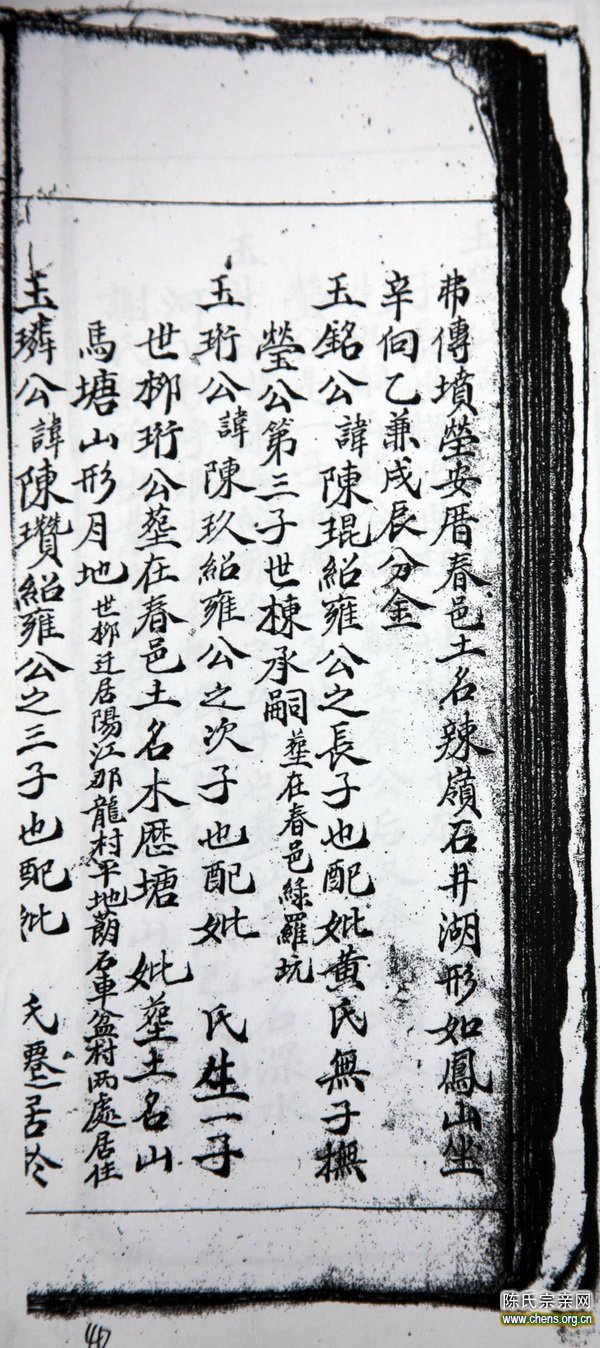 弗傳墳塋安厝春邑土名辣嶺石井湖形如鳳山坐
辛向乙兼戌辰分金
玉銘公諱陳琨紹雍公之長子也配妣黄氏無子撫
瑩公第三子世棟承嗣塟在春邑緑羅坑
玉珩公諱陳玖紹雍公之次子也配妣 氏生一子
世栁珩公塟在春邑土名木歴塘 妣塟土名山
馬塘山形月地世栁迁居陽江那龍村平地蓢石車盆村两處居住
玉璘公諱陳瓚紹雍公之三子也配妣 氏遷居于
陈氏宗亲网
www.chens.org.cn